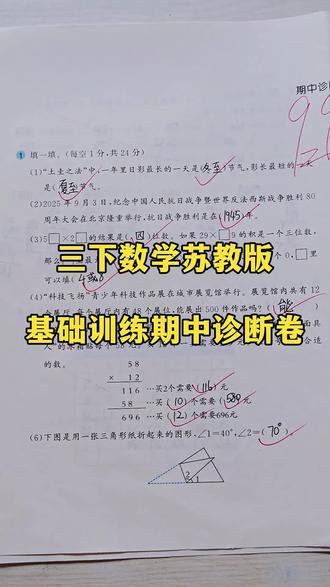 期中诊
99
1 填一填。(每空1分,共24分)
(1)“土圭之法”中,一年里日影最长的一天是(冬至)节气,影长最短的一天
是(夏至)节气。
(2)2025年9月3日,纪念中国人民抗日战争暨世界反法西斯战争胜利80
周年大会在北京隆重举行,抗日战争胜利是在(1945)年。
(3)5□×2□的结果是(四)位数。如果29×□9的积是一个三位数,
三下数学苏教版
可以填(
(4)“科技飞扬”青少年科技作品展在城市展览馆举行。展览馆内共有12
个展位,能展出500件作品吗?(能)
基础训练期中诊断卷
的数。
58
× 12
116 …买2个需要(116)元
58 …买(10)个需要(580)元
696 …买(12)个需要696元
(6)下图是用一张三角形纸折起来的图形,∠1=40°,∠2=(70°)。
2
1